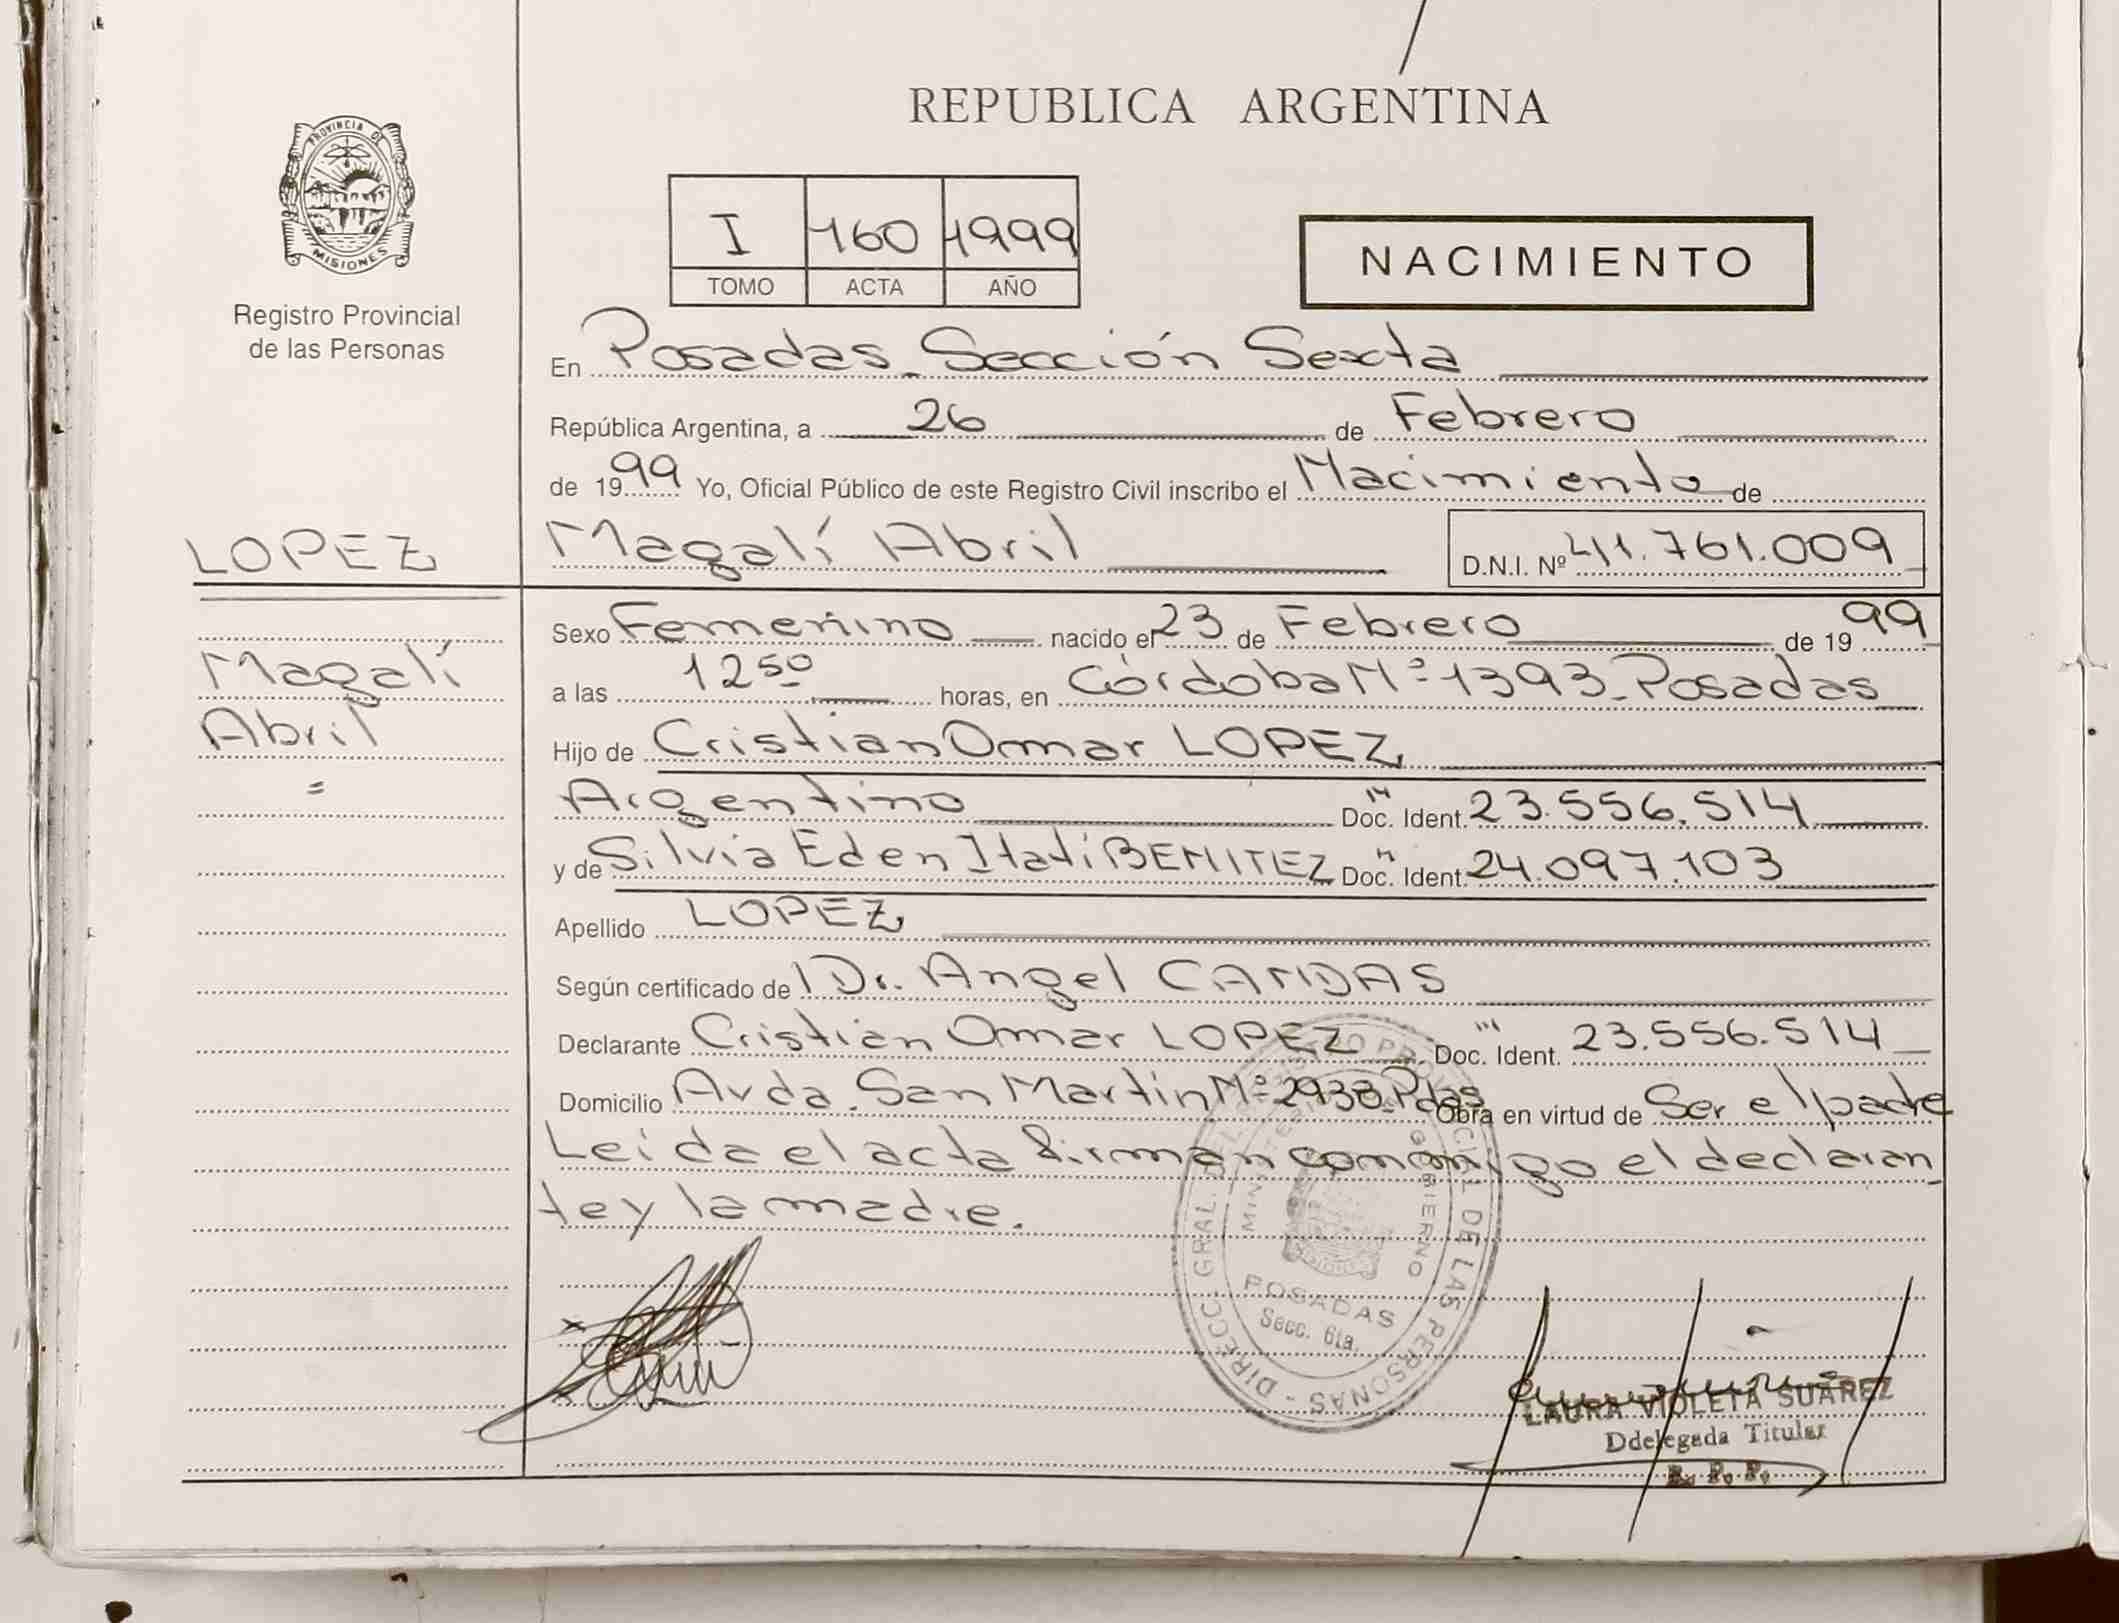 REPUBLICA ARGENTINA
PROVINCIA DE
MISIONES
Registro Provincial
de las Personas
I 160 1999
TOMO ACTA AÑO
NACIMIENTO
En Posadas - Sección Sexta
República Argentina, a 26 de Febrero
de 1999 Yo, Oficial Público de este Registro Civil inscribo el Nacimiento de
LOPEZ
Magalí Abril D.N.I. Nº 41.761.009
Sexo Femenino nacido el 23 de Febrero de 1999
Magalí
a las 12⁵⁰ horas, en Córdoba Nº 1393 - Posadas
Abril
Hijo de Cristian Omar LOPEZ
=
Argentino Doc. Ident. 23.556.514
y de Silvia Eden Itatí BENITEZ Doc. Ident. 24.097.103
Apellido LOPEZ
Según certificado de Dr. Angel CANDAS
Declarante Cristian Omar LOPEZ Doc. Ident. 23.556.514
Domicilio Avda. San Martín Nº 2938 - Pdas Obra en virtud de Ser el padre
Leída el acta firman conmigo el declaran
te y la madre.
DIRECC. GRAL. DEL REGISTRO PROVINCIAL DE LAS PERSONAS
MINISTERIO DE GOBIERNO
POSADAS
Secc. 6ta.
LAURA VIOLETA SUAREZ
Ddelegada Titular
R. P. P.